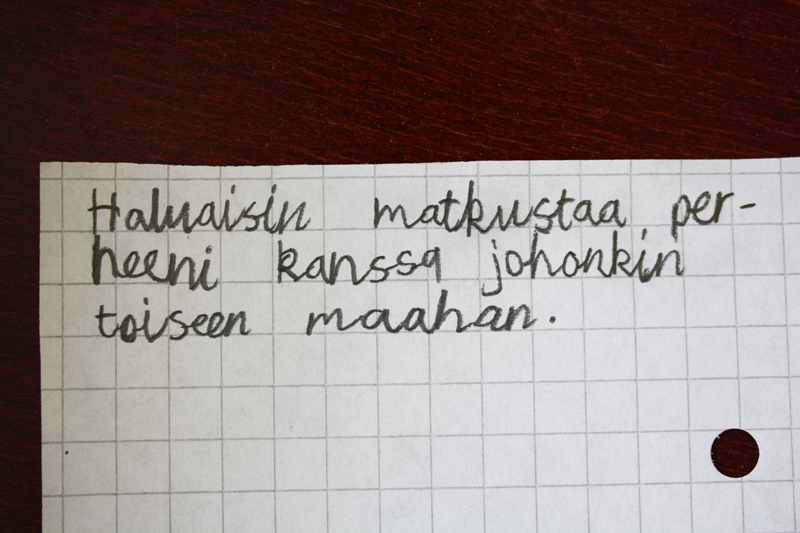 Haluaisin matkustaa per-
heeni kanssa johonkin
toiseen maahan.